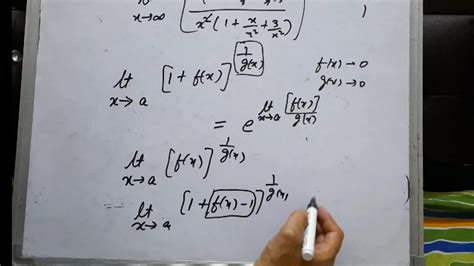 x→∞ x²(1 + x/x² + 3/x²)
lt x→a [1 + f(x)]^(1/g(x)) f(x)→0
g(x)→0
= e^(lt x→a [f(x)]/g(x))
lt x→a [f(x)]^(1/g(x))
lt x→a [1 + f(x) - 1]^(1/g(x))